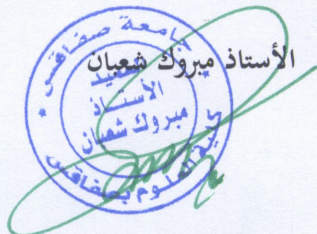 الأستاذ مبروك شعبان
جامعة صفاقس
عميد
الأستــاذ
مبروك شعبان
كلية العلوم بصفاقس